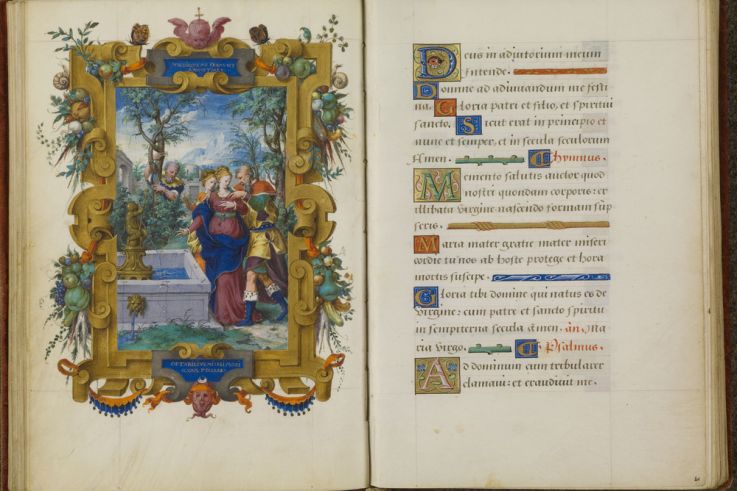 Deus in adiutorium meum
Intende.
Domine ad adiuuandum me festi
na. Gloria patri et filio, et spiritui
sancto. Sicut erat in principio et
nunc et semper, et in secula seculorum
Amen. Hymnus.
Memento salutis auctor quod
nostri quondam corporis: ex
illibata virgine nascendo formam sūp
seris.
Maria mater gratie mater miseri
cordie tu nos ab hoste protege et hora
mortis suscipe.
Gloria tibi domine qui natus es de
virgine: cum patre et sancto spiritu
in sempiterna secula Amen. an. Ma
ria virgo. Psalmus.
Ad dominum cum tribularer
clamaui: et exaudiuit me.